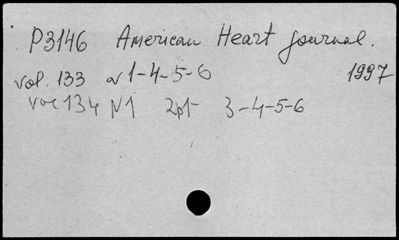 P3146 American Heart Journal.
vol. 133 N 1-4-5-6 1997
vol 134 N1 2pt 3-4-5-6